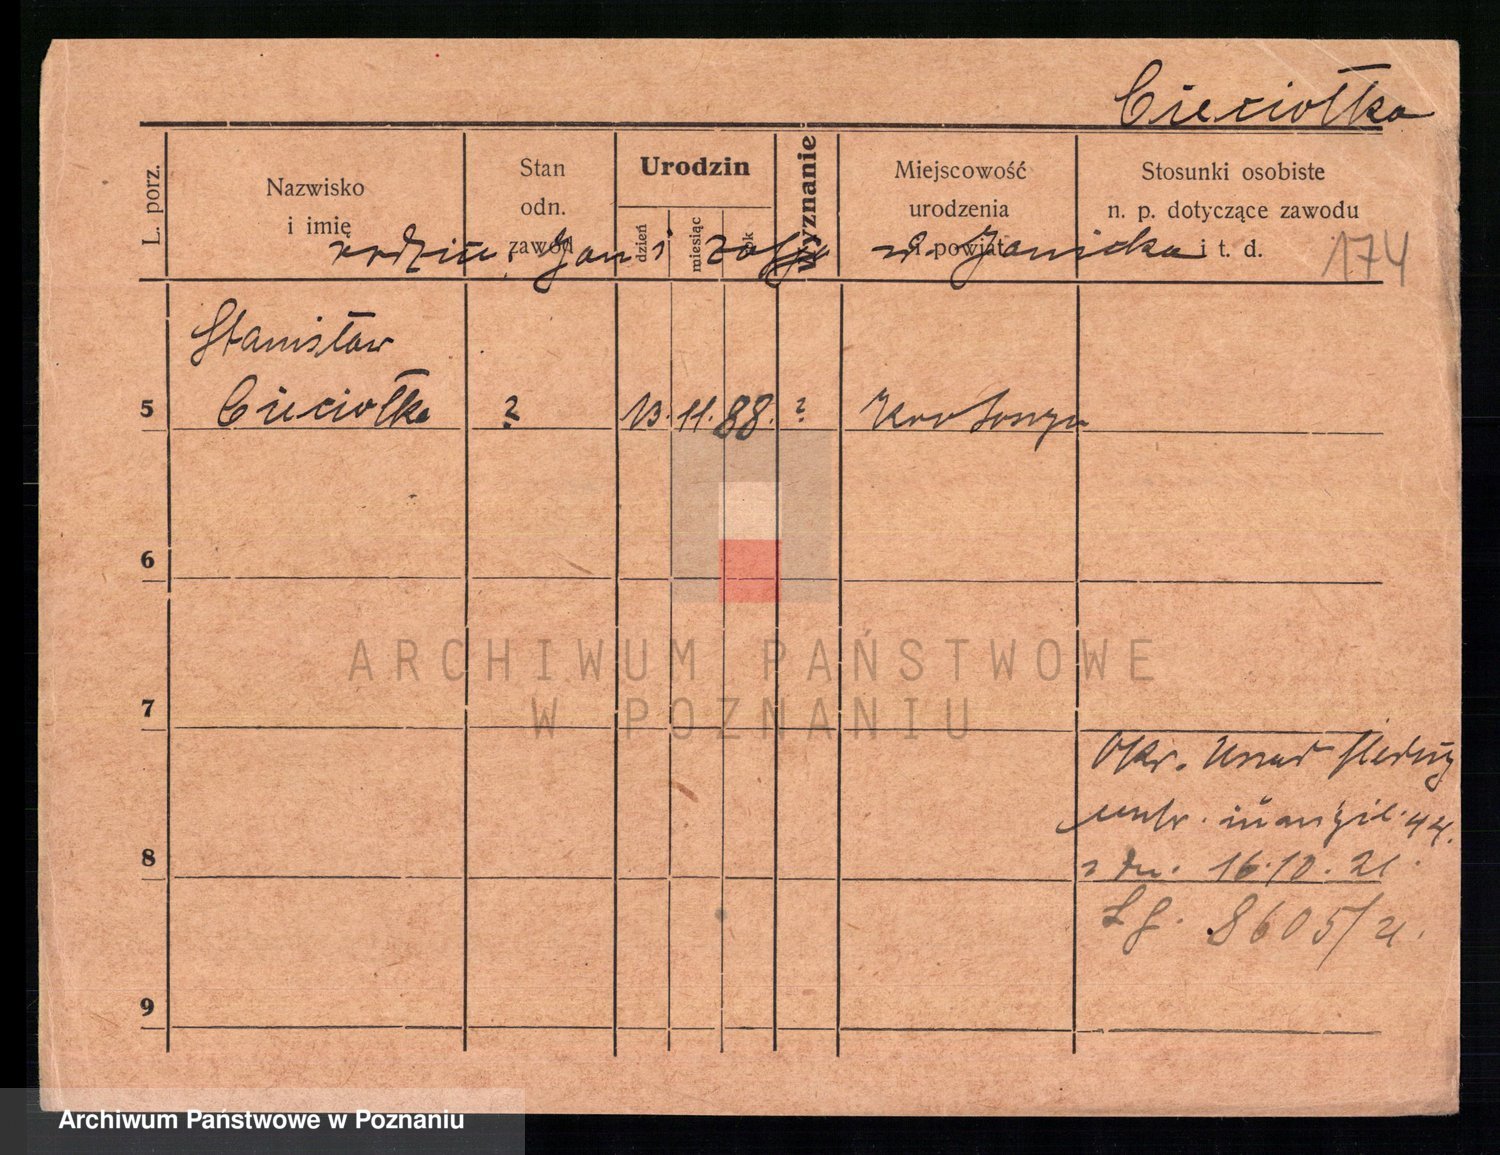 Cieciołka
L. porz.
Nazwisko
i imię
Stan
odn.
zawód
Urodzin
dzień
miesiąc
rok
Wyznanie
Miejscowość
urodzenia
i powiat
Stosunki osobiste
n. p. dotyczące zawodu
i t. d.
rodzice: Jan i Zofja d. Janicka
174
Stanisław
5 Cieciołka ? 13. 11. 88. ?
6
7
Okr. Urząd
44.
8
z dn. 16.10.21.
8605/21.
9
ARCHIWUM PAŃSTWOWE
W POZNANIU
Archiwum Państwowe w Poznaniu